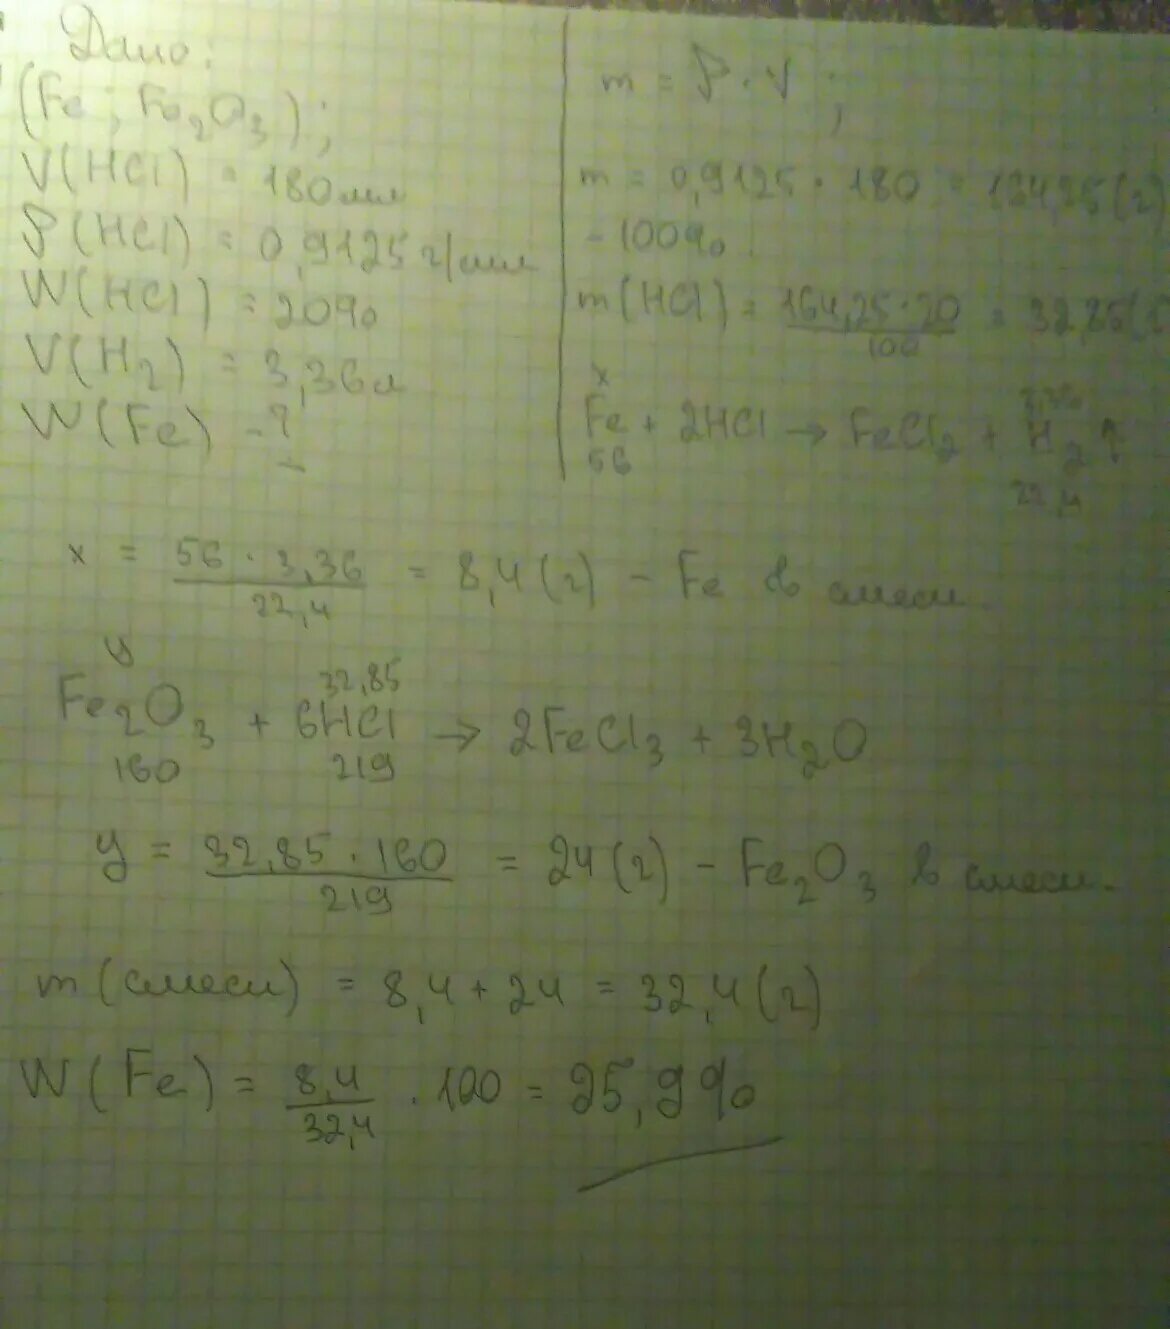 Дано:
(Fe; Fe2O3);
V(HCl) = 180мл
ρ(HCl) = 0,9125 г/мл
W(HCl) = 20%
V(H2) = 3,36л
W(Fe) - ?
m = ρ · V ;
m = 0,9125 · 180 = 164,25 (г)
- 100%.
m(HCl) = 164,25 · 20 / 100 = 32,85 (г
x 3,36
Fe + 2HCl → FeCl2 + H2 ↑
56 22,4
x = 56 · 3,36 / 22,4 = 8,4 (г) - Fe в смеси.
y 32,85
Fe2O3 + 6HCl → 2FeCl3 + 3H2O
160 219
y = 32,85 · 160 / 219 = 24 (г) - Fe2O3 в смеси.
m (смеси) = 8,4 + 24 = 32,4 (г)
W (Fe) = 8,4 / 32,4 · 100 = 25,9%